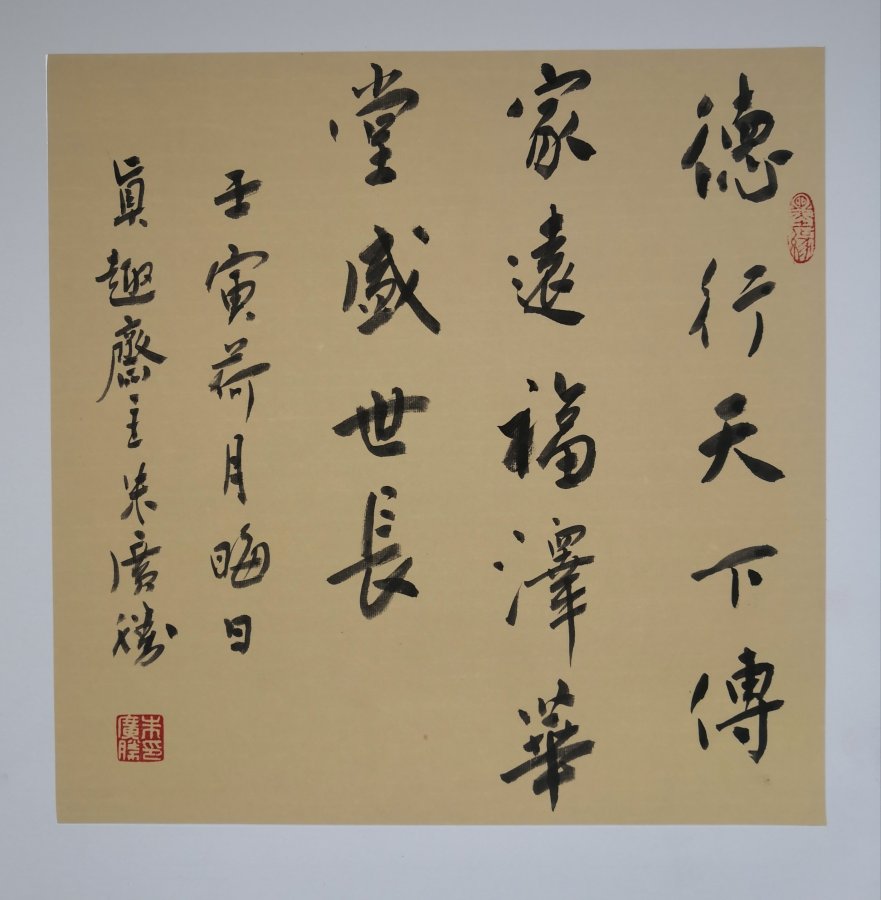 德行天下傳
家遠福澤華
堂盛世長
壬寅荷月晦日
眞趣齋主朱廣勝
朱印廣勝